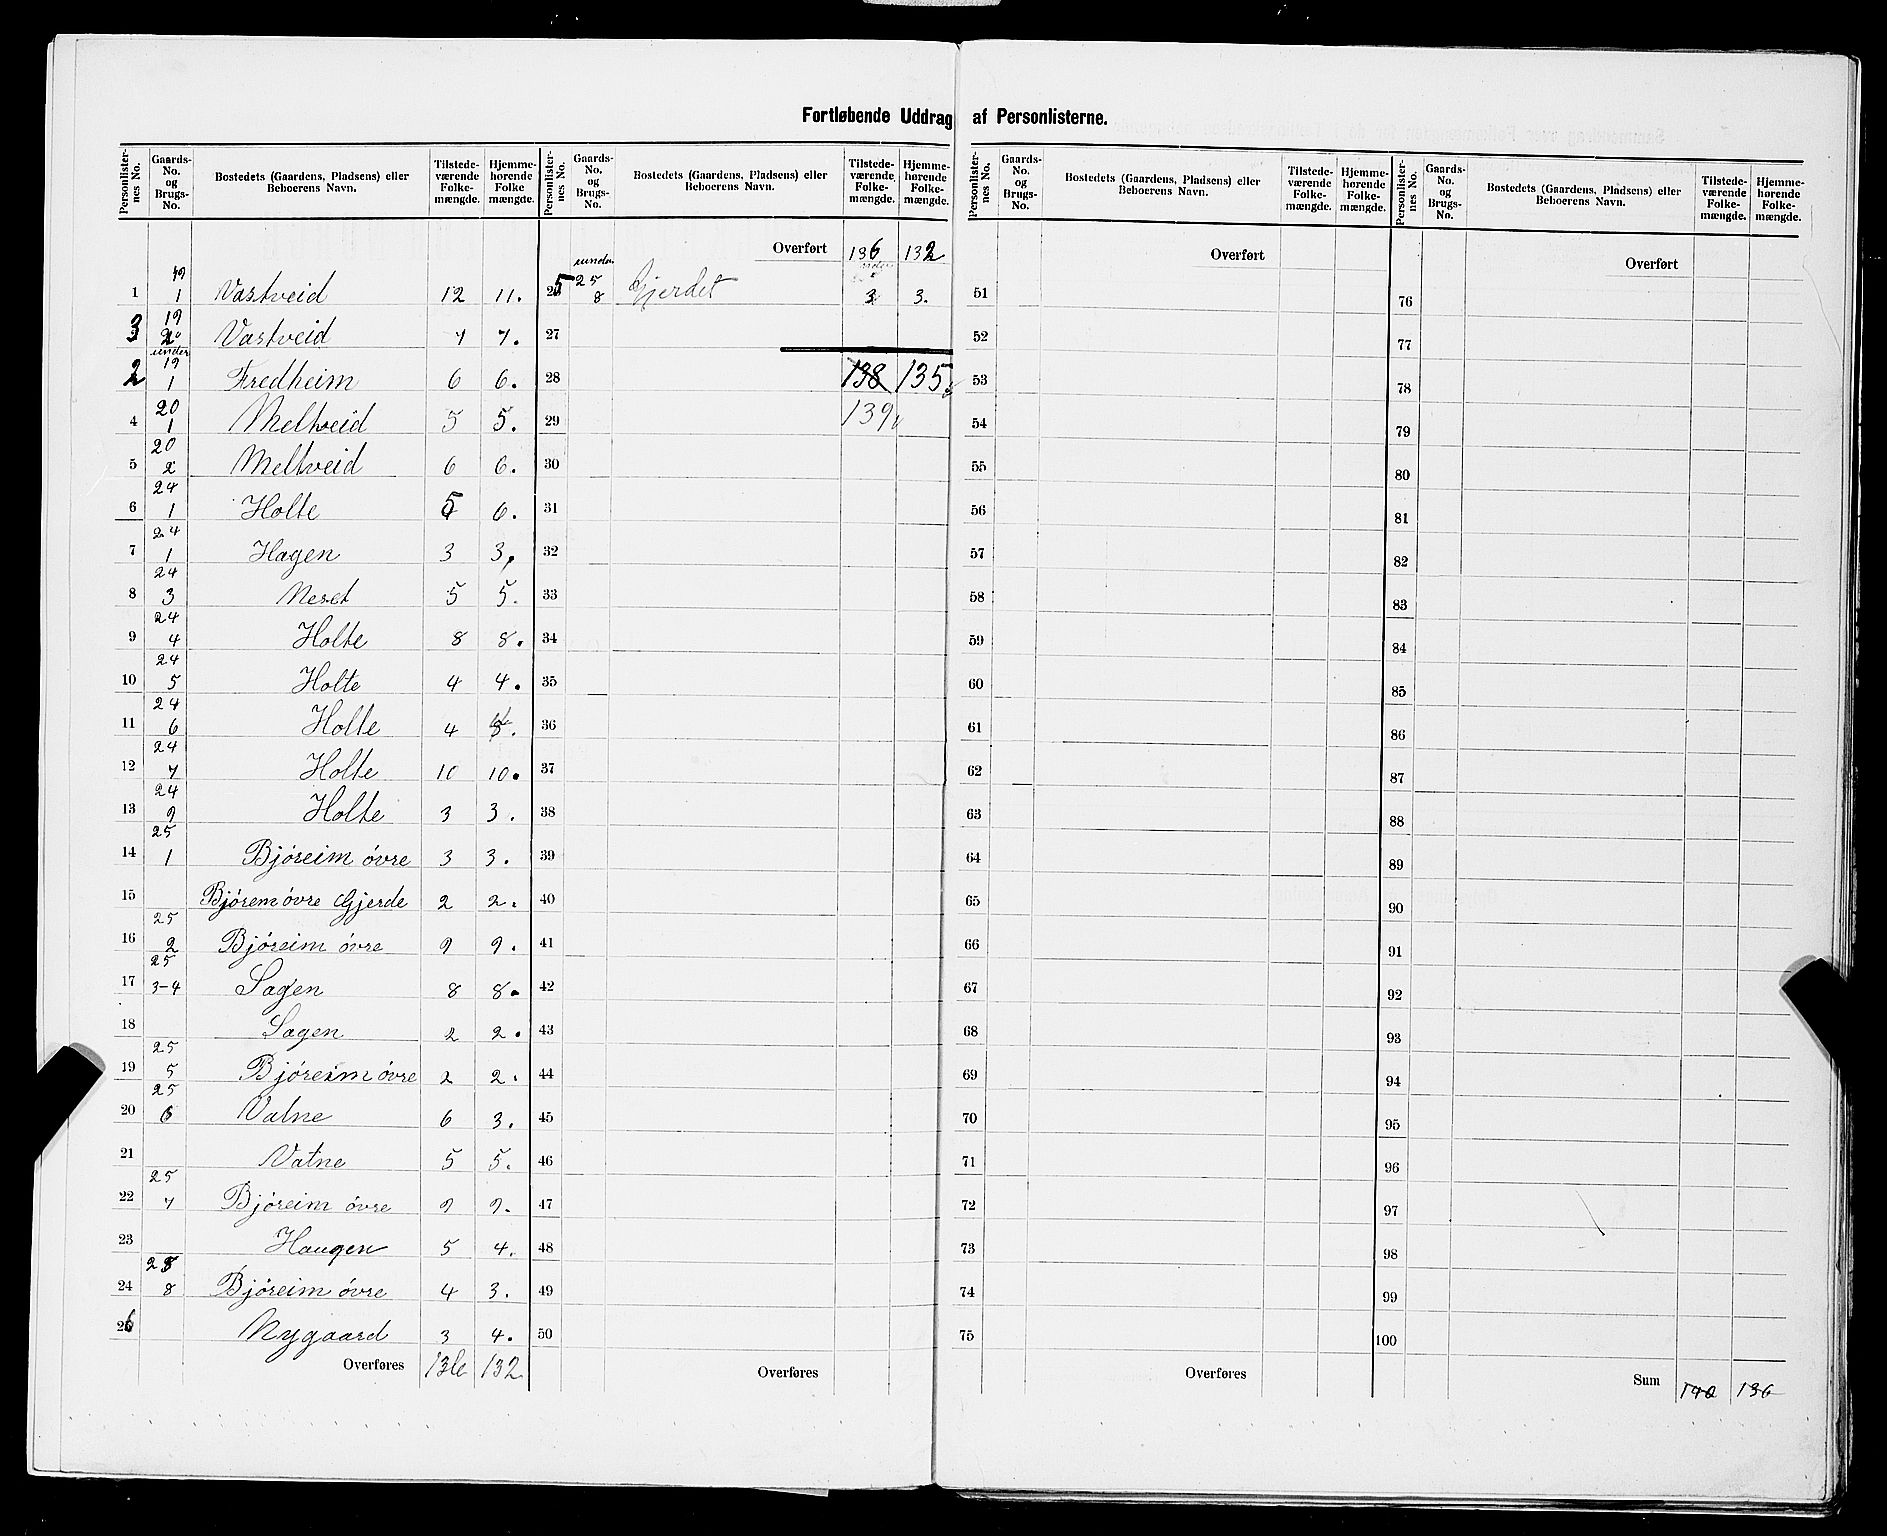 Fortløbende Uddrag af Personlisterne.
Personlister-nes No. Gaards-No. og Brugs-No. Bostedets (Gaardens, Pladsens) eller Beboerens Navn. Tilstede-værende Folke-mængde. Hjemme-hørende Folke mængde.
19
1 1 Vastveid 12 11.
19
3 2 Vastveid 7 7.
under
19
2 1 Fredheim 6 6.
20
4 1 Meltveid 5 5.
20
5 2 Meltveid 6 6.
24
6 1 Holte 5 6.
24
7 1 Hagen 3 3,
24
8 3 Neset 5 5.
24
9 4 Holte 8 8.
24
10 5 Holte 4 4.
24
11 6 Holte 4
24
12 7 Holte 10 10.
24
13 9 Holte 3 3.
25
14 1 Bjóreim óvre 3 3.
15 Bjórem óvre Gjerde 2 2.
25
16 2 Bjóreim óvre 9 9.
25
17 3-4 Sagen 8 8.
18 Sagen 2 2.
25
19 5 Bjóreim óvre 2 2.
25
20 6 Vatne 6 3.
21 Vatne 5 5.
25
22 7 Bjóreim óvre 9 9.
23 Haugen 5 4.
25
24 8 Bjóreim óvre 4 3.
26 Nygaard 3 4.
Overføres 136 132
Personlister-nes No. Gaards-No. og Brugs-No. Bostedets (Gaardens, Pladsens) eller Beboerens Navn. Tilstede-værende Folke-mængde. Hjemme-hørende Folke-mængde.
Overført 136 132
under
25
25 8 Gjerdet 3 3.
27
28 138 135
29 139
30
31
32
33
34
35
36
37
38
39
40
41
42
43
44
45
46
47
48
49
50
Overføres
Personlister-nes No. Gaards-No. og Brugs-No. Bostedets (Gaardens, Pladsens) eller Beboerens Navn. Tilstede-værende Folke-mængde. Hjemme-hørende Folke-mængde.
Overført
51
52
53
54
55
56
57
58
59
60
61
62
63
64
65
66
67
68
69
70
71
72
73
74
75
Overføres
Personlister-nes No. Gaards-No. og Brugs-No. Bostedets (Gaardens, Pladsens) eller Beboerens Navn. Tilstede-værende Folke-mængde. Hjemme-hørende Folke-mængde.
Overført
76
77
78
79
80
81
82
83
84
85
86
87
88
89
90
91
92
93
94
95
96
97
98
99
100
Sum 140 136